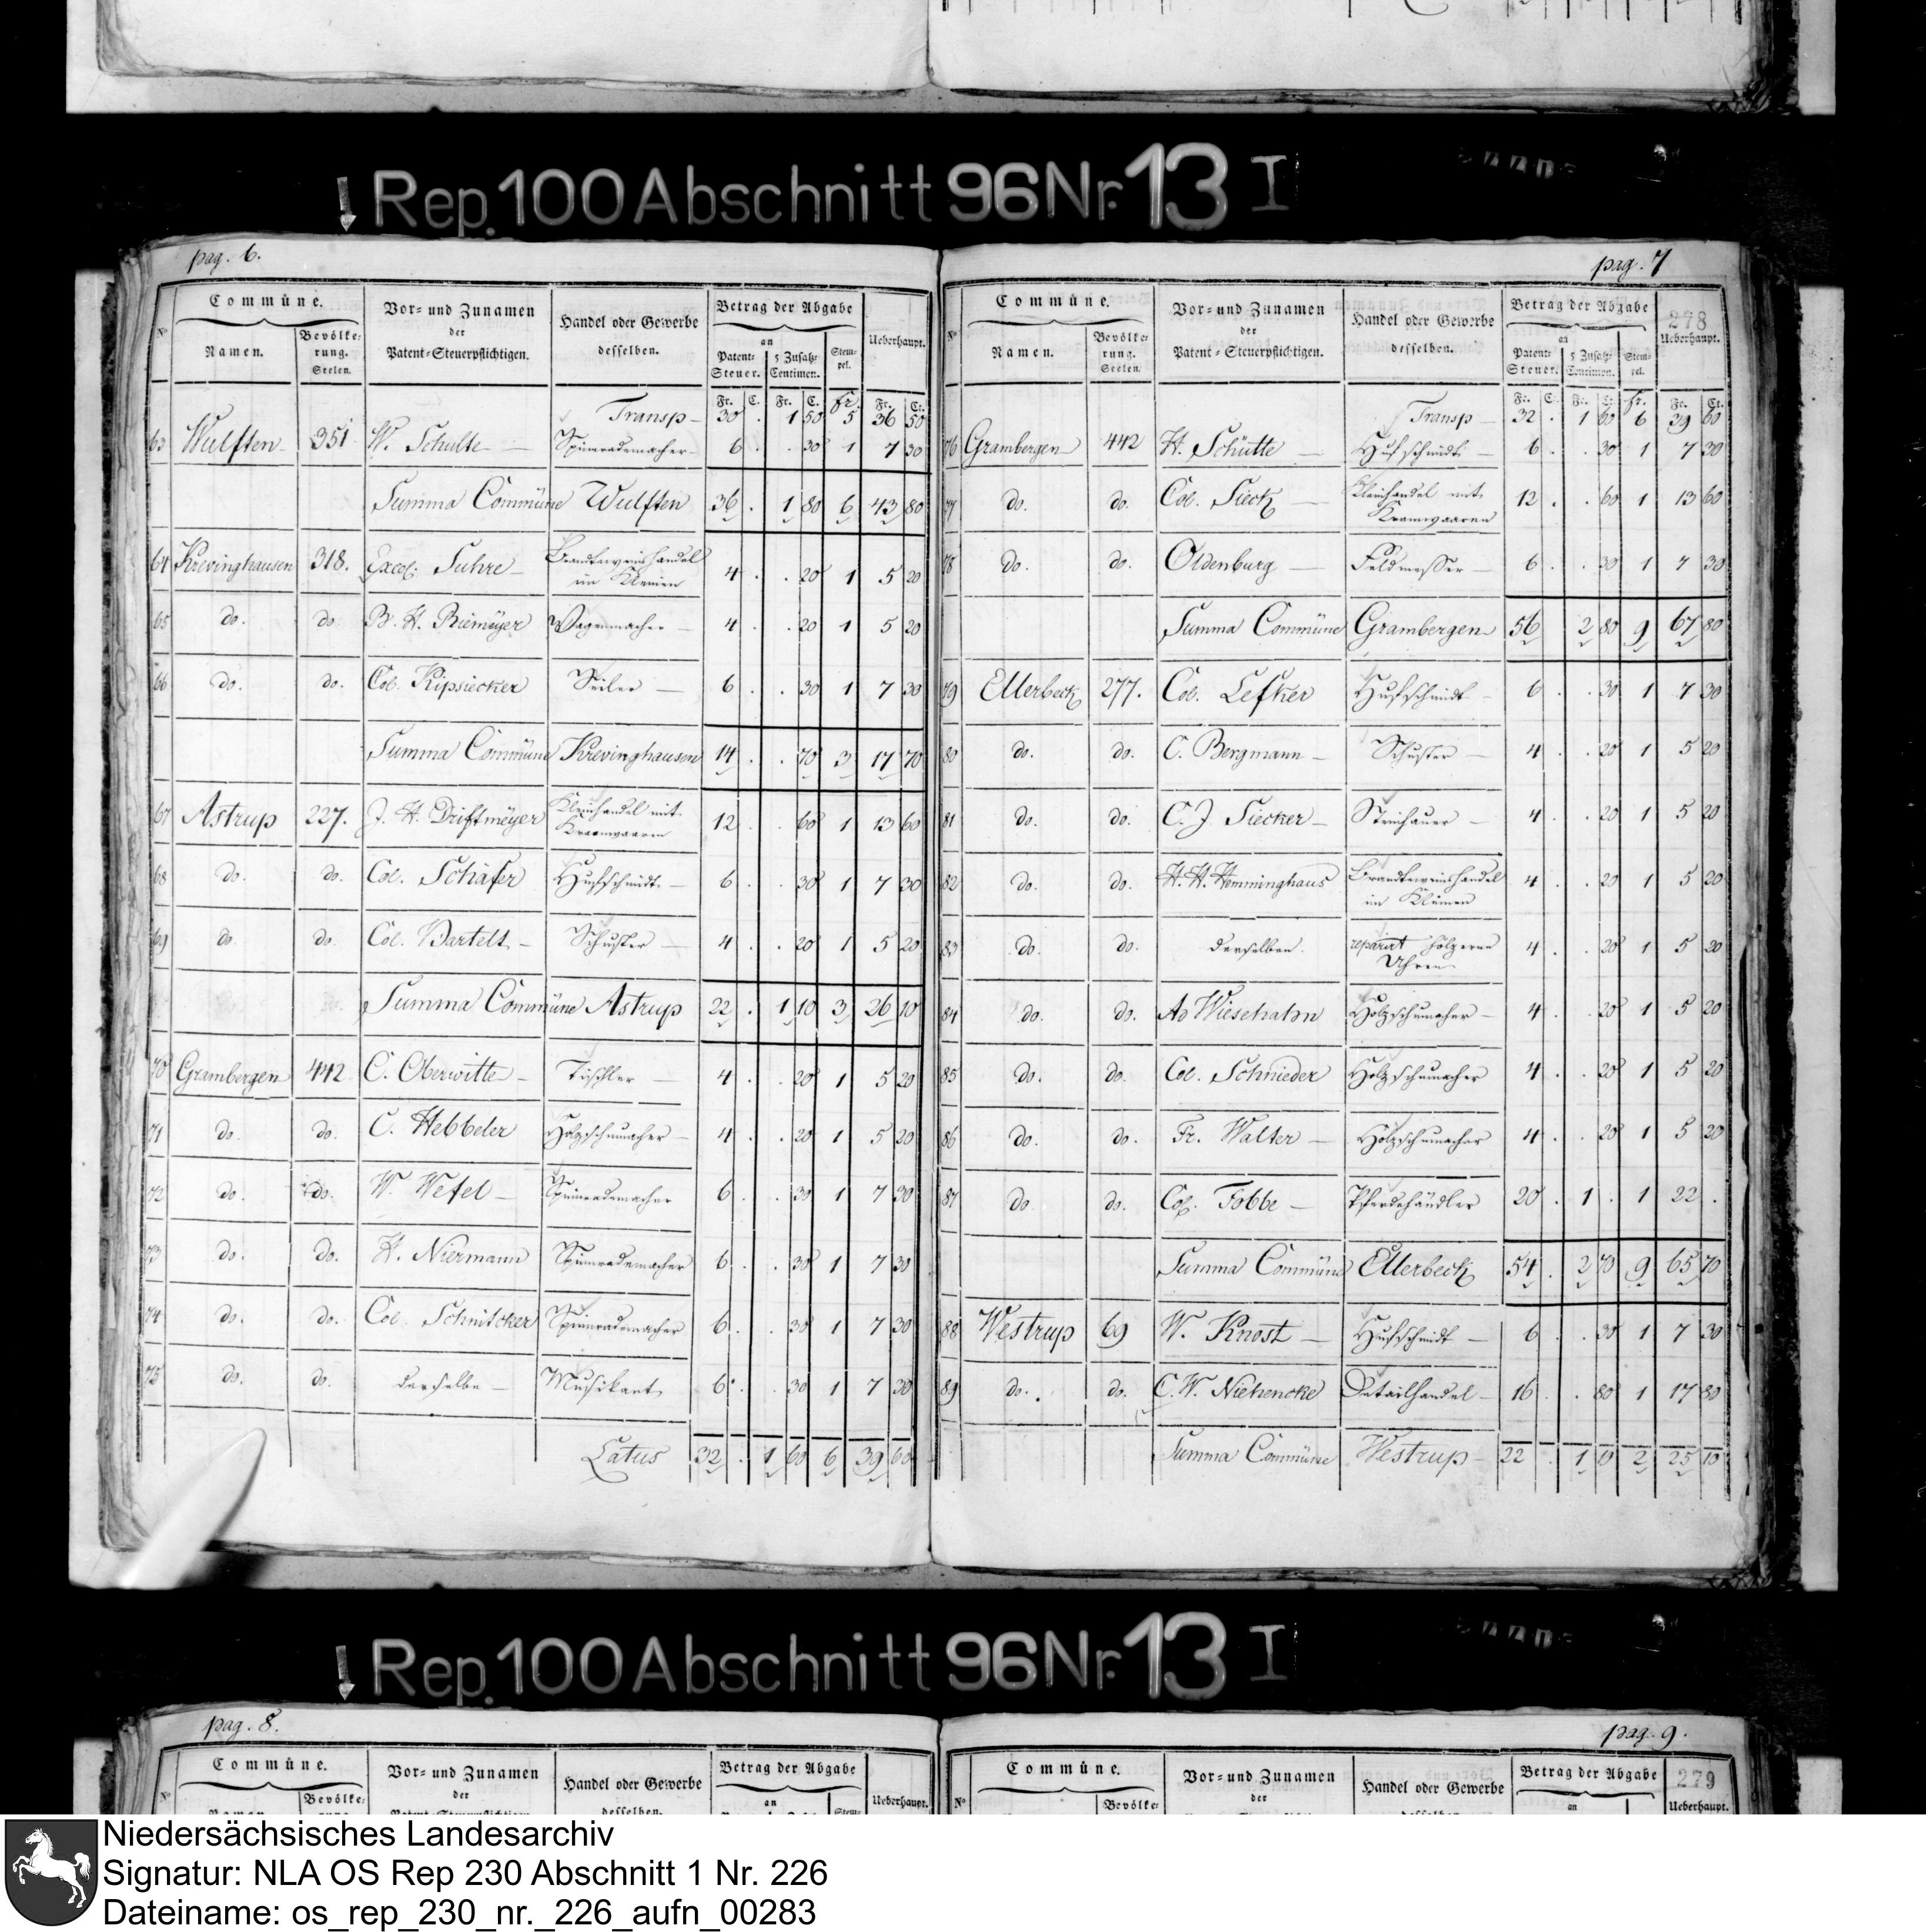 Rep. 100 Abschnitt 96 Nr. 13 I
pag. 6.
Commüne. Vor- und Zunamen Handel oder Gewerbe Betrag der Abgabe Ueberhaupt.
No Namen. Bevölke- der desselben. an
rung. Patent-Steuerpflichtigen. Patent- 5 Zusatz- Stem-
Seelen. Steuer. Centimen. pel.
Fr. C. Fr. C. Fr. Fr. Ct.
Transp 30 . 1 50 5 36 50
63 Wulften 351 W. Schulte Spinnrademacher 6 . . 30 1 7 30
Summa Commüne Wulften 36 . 1 80 6 43 80
64 Krevinghausen 318. Excol. Suhre Brandtweinshandel
im Kleinen 4 . . 20 1 5 20
65 do. do. B. H. Riemeyer Wagenmacher 4 . . 20 1 5 20
66 do. do. Col. Kipsiecker Seiler 6 . . 30 1 7 30
Summa Commüne Krevinghausen 14 . . 70 3 17 70
67 Astrup 227. J. H. Driftmeyer Kleinhandel mit
Kramwaaren 12 . . 60 1 13 60
68 do. do. Col. Schäfer Hufschmidt 6 . . 30 1 7 30
69 do. do. Col. Bartelt Schuster 4 . . 20 1 5 20
Summa Commüne Astrup 22 . 1 10 3 26 10
70 Grambergen 442 C. Oberwitte Tischler 4 . . 20 1 5 20
71 do. do. C. Hebbeler Holzschumacher 4 . . 20 1 5 20
72 do. do. W. Wefel Spinnrademacher 6 . . 30 1 7 30
73 do. do. H. Niermann Spinnrademacher 6 . . 30 1 7 30
74 do. do. Col. Schnitcker Spinnrademacher 6 . . 30 1 7 30
75 do. do. derselbe Musikant 6 . . 30 1 7 30
Latus 32 . 1 60 6 39 60
pag. 7
278
Commüne. Vor- und Zunamen Handel oder Gewerbe Betrag der Abgabe Ueberhaupt.
No Namen. Bevölke- der desselben. an
rung. Patent-Steuerpflichtigen. Patent- 5 Zusatz- Stem-
Seelen. Steuer. Centimen. pel.
Fr. C. Fr. C. Fr. Fr. Ct.
Transp 32 . 1 60 6 39 60
76 Grambergen 442 H. Schütte Hufschmidt 6 . . 30 1 7 30
77 do. do. Col. Sieck Kleinhandel mit
Kramwaaren 12 . . 60 1 13 60
78 do. do. Oldenburg Feldmesser 6 . . 30 1 7 30
Summa Commüne Grambergen 56 2 80 9 67 80
79 Ellerbeck 277. Col. Lefker Hufschmidt 6 . . 30 1 7 30
80 do. do. C. Bergmann Schuster 4 . . 20 1 5 20
81 do. do. C. J. Siecker Steinhauer 4 . . 20 1 5 20
82 do. do. H. H. Hemminghaus Brandtweinshandel
im Kleinen 4 . . 20 1 5 20
83 do. do. derselben reparirt hölzerne
Uhren 4 . . 20 1 5 20
84 do. do. Ad Wiesehahn Holzschumacher 4 . . 20 1 5 20
85 do. do. Col. Schnieder Holzschumacher 4 . . 20 1 5 20
86 do. do. Fr. Walter Holzschumacher 4 . . 20 1 5 20
87 do. do. Col. Tobbe Pferdehändler 20 . 1 . 1 22 .
Summa Commüne Ellerbeck 54 . 2 70 9 65 70
88 Westrup 69 W. Knost Hufschmidt 6 . . 30 1 7 30
89 do. do. C. W. Niehencke Detailhandel 16 . . 80 1 17 80
Summa Commüne Westrup 22 . 1 10 2 25 10
Rep. 100 Abschnitt 96 Nr. 13 I
pag. 8.
Commüne. Vor- und Zunamen Handel oder Gewerbe Betrag der Abgabe Ueberhaupt.
No Bevölke- der an
pag. 9.
279
Commüne. Vor- und Zunamen Handel oder Gewerbe Betrag der Abgabe Ueberhaupt.
No Bevölke- der an
Niedersächsisches Landesarchiv
Signatur: NLA OS Rep 230 Abschnitt 1 Nr. 226
Dateiname: os_rep_230_nr._226_aufn_00283